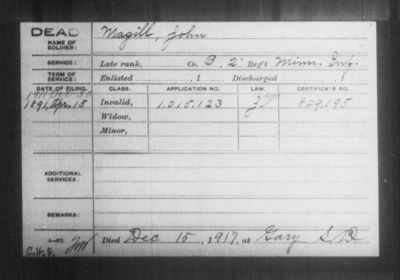 DEAD
NAME OF SOLDIER: Magill, John
SERVICE: Late rank, Co. B, 2" Reg't Minn. Inf.
TERM OF SERVICE: Enlisted , 1 Discharged , 1
DATE OF FILING. CLASS. APPLICATION NO. LAW. CERTIFICATE NO.
1891, Apr. 15 Invalid, 1,015,123 829,195
Widow,
Minor,
ADDITIONAL SERVICES:
REMARKS:
Died Dec 15, 1917, at Gary S.D.